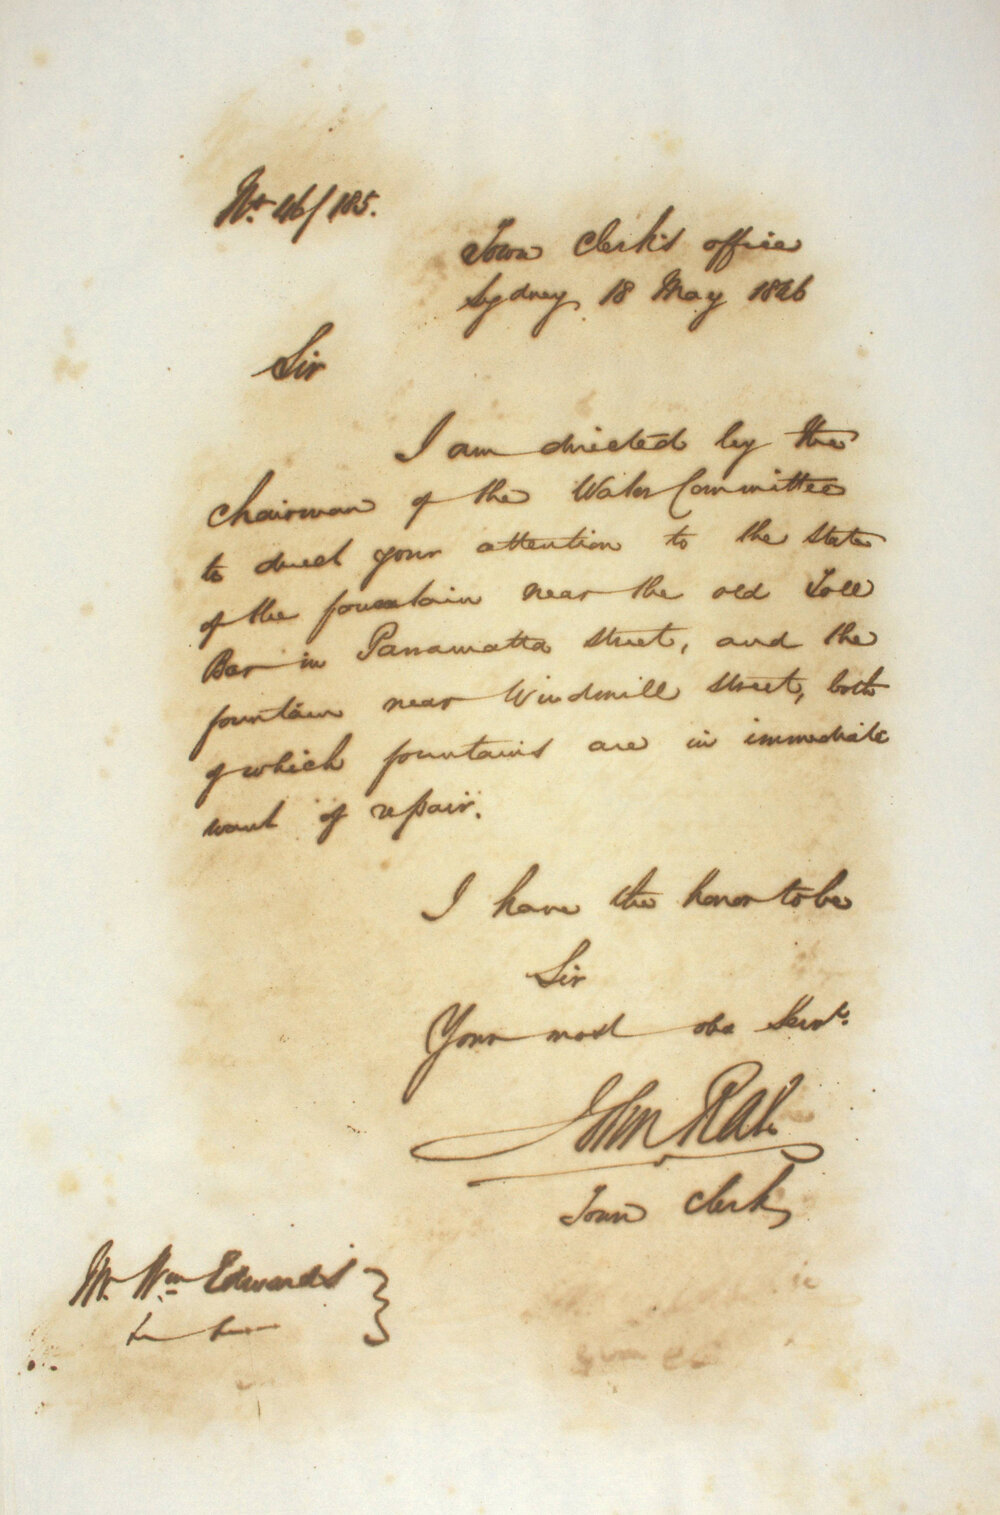 No. 46/185.
Town Clerk's office
Sydney 18 May 1846
Sir
I am directed by the
Chairman of the Water Committee
to direct your attention to the state
of the fountain near the old Toll
Bar in Parramatta street, and the
fountain near Windmill street, both
of which fountains are in immediate
want of repair.
I have the honor to be
Sir
Your most obe Servt.
John Rae
Town Clerk
Mr. Wm Edwards